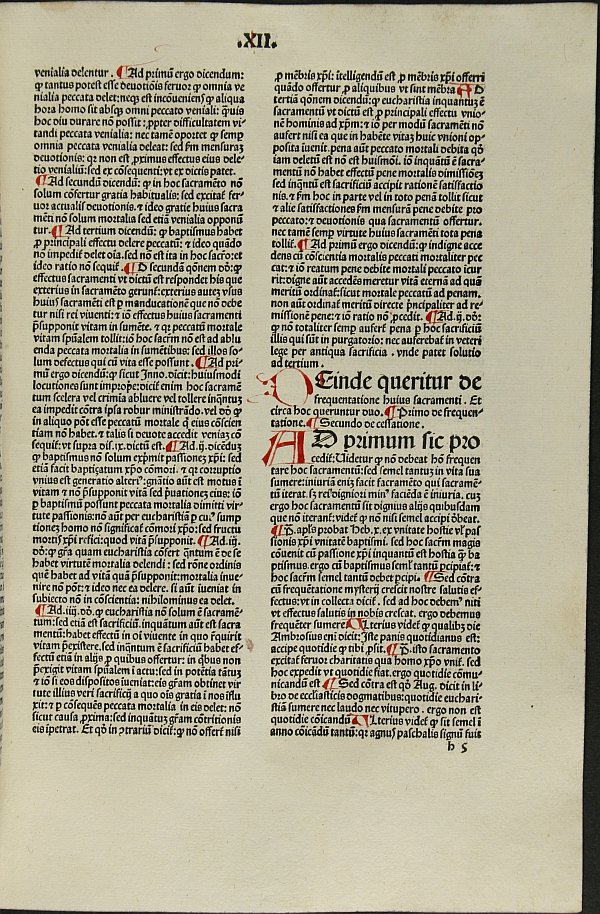 .XII.
venialia delentur. ¶ Ad primū ergo dicendum:
ꝙ tantus potest esse deuotiōis feruor ꝙ omnia ve
nialia peccata delet: neqꝫ est incōueniens̄ ꝙ aliqua
hora homo sit absqꝫ omni peccato veniali: q̄uis
hoc diu durare nō possit: ꝓpter difficultatem vi-
tandi peccata venialia: nec tamē oportet ꝙ semp
omnia peccata venialia deleat: sed ẜm mensurā
deuotionis: qꝛ non est ꝓximus effectus eius dele-
tio venialiū: sed ex cōsequenti: vt ex dictis patet.
¶ Ad secundū dicendū: ꝙ in hoc sacramēto nō
solum cōfertur gratia habitualis: sed excitat̄ fer-
uor actualis deuotionis. ⁊ ideo gratie huius sacra
mēti nō solum mortalia sed etiā venialia opponū
tur. ¶ Ad tertium dicendū: ꝙ baptismus habet
ꝓ principali effectu delere peccatū: ⁊ ideo quādo
no impedit̄ delet oīa. sed nō est ita in hoc sacro: et
ideo ratio nō sequit̄. ¶ D secundā qōnem dō: ꝙ
effectus sacramenti vt dictū est respondet his que
exterius in sacramēto gerunt̄: exterius autē vsus
huius sacramēti est ꝑ manducationē que nō debe
tur nisi rei viuenti: ⁊ iō effectus huius sacramenti
p̄supponit vitam in sumēte. ⁊ qꝛ peccatū mortale
vitam sp̄ualem tollit: iō hoc sacr̄m nō est ad ablu
enda peccata mortalia in sumētibus: sed illos so-
lum defectus qui cū vita esse possunt. ¶ Ad pri-
mū ergo dicendū: ꝙ sicut Inno. dicit: huiusmodi
locutiones sunt improp̄e: dicit̄ enim hoc sacramē
tum scelera vel crimia abluere vel tollere inq̄ntus
ea impedit cōtra ipsa robur ministrādo. vel dō ꝙ
in aliquo pōt esse peccatū mortale q̄ eius cōscien
tiam nō habet. ⁊ talis si deuote accedit veniaꝫ cō
sequit̄: vt supra dis. ix. dictū est. ¶ Ad. ij. dicēdū
ꝙ baptismus nō solum exp̄mit passionez xp̄i: sed
etiā facit baptiȝatum xp̄o cōmori. ⁊ qꝛ corruptio
vnius est generatio alterius: gn̄atio aūt est motus ī
vitam ⁊ nō p̄supponit vitā sed p̄uationeȝ eius: iō
ꝑ baptismū possunt peccata mortalia dimitti vir-
tute passionis: nō aūt per eucharistiā ꝑ cuius sump
tioneꝫ homo nō significat̄ cōmori xp̄o: sed fructu
mortis xp̄i refici: quod vitā p̄supponit. ¶ Ad. iij.
dō: ꝙ gr̄a quam eucharistia cōfert q̄ntum ē de se
habet virtutē mortalia delendi: sed rōne ordinis
quē habet ad vitā quā p̄supponit: mortalia inue-
nire nō pōt: ⁊ ideo nec ea delere. si aūt iueniat in
subiecto nō in cōscientia: nihilominus ea delet.
¶ Ad. iiij. dō. ꝙ eucharistia nō solum ē sacramē-
tum: sed etiā est sacrificiū. inquantum aūt est sacra
mentū: habet effectū in oī viuente in quo req̄rit
vitam p̄existere. sed inq̄ntum ē sacrificiū habet ef-
fectū etiā in alijs ꝓ quibus offertur: in q̄bus non
p̄exigit vitam sp̄ualem ī actu: sed in potētia tātuȝ
⁊ iō si eos dispositos iueniat: eis gratiam obtinet vir
tute illius veri sacrificij a quo oīs gratia ī nos īflu
xit: ⁊ ꝑ cōsequēs peccata mortalia in eis delet: nō
sicut causa ꝓxima: sed inquantuȝ gratiam cōtritionis
eis īpetrat. Et qō in ꝯtrariū dicit̄: ꝙ nō offert̄ nisi
ꝓ mēbris xp̄i: ītelligendū est ꝓ mēbris xp̄i offerri
quādo offertur ꝓ aliquibus vt sint mēbra ¶ A D
tertiā qōnem dicendū: ꝙ eucharistia inquantuȝ ē
sacramentū vt dictū est ꝓ principali effectu vnio-
nē hominis ad xp̄m: ⁊ iō per modū sacramēti nō
aufert nisi ea que in habēte vitaȝ huic vnioni op-
posita iuenit. pena aūt peccato mortali debita qō
iam deletū est nō est huismōi. iō inquātū ē sacra-
mentū nō habet effectū pene mortalis dimissiōeȝ
sed inq̄ntū est sacrificiū accipit rationē satisfactio
nis. ⁊ ẜm hoc in parte vel in toto penā tollit sicut
⁊ alie satisfactiones ẜm mensurā pene debite pro
peccato: ⁊ deuotionis qua sacramentū offertur.
nec tamē semp virtute huius sacramēti tota pena
tollit̄. ¶ Ad primū ergo dicendū: ꝙ indigne acce
dens cū cōscientia mortalis peccati mortaliter pec
cat: ⁊ iō reatum pene debite mortali peccato icur
rit: digne aūt accedēs meretur vitā eternā ad quā
meritū ordinat̄: sicut mortale peccatū ad penam.
non aūt ordinat̄ meritū directe p̄ncipaliter ad re-
missionē pene: ⁊ iō ratio nō ꝓcedit. ¶ Ad. ij. dō:
ꝙ nō totaliter semp aufert̄ pena ꝑ hoc sacrificiū
illis qui sūt in purgatorio: nec auferebat̄ in veteri
lege per antiqua sacrificia. vnde patet solutio
ad tertium.
DEinde queritur de
frequentatione huius sacramenti. Et
circa hoc queruntur duo. ¶ Primo de frequen-
tatione. ¶ Secundo de cessatione.
AD primum sic pro
cedit̄: Uidetur ꝙ nō debeat hō frequen
tare hoc sacramentū: sed semel tantuȝ in vita sua
sumere: iniuriā eniȝ facit sacramēto qui sacramē-
tū iterat. sȝ rei digniori minus faciēda ē iniuria. cuȝ
ergo hoc sacramentū sit dignius alijs quibusdam
que nō iterant̄: videt̄ ꝙ nō nisi semel accipi debeat.
¶ P. apl̄s probat Heb. x. ex vnitate hostie vl̄ pas
sionis xp̄i vnitatē baptismi. sed hoc sacr̄m magis
cōuenit cū passione xp̄i inquantū est hostia q̄ ba
ptismus. ergo cū baptismus semel tantū ꝑcipiat̄: ⁊
hoc sacr̄m semel tantū debet ꝑcipi. ¶ Sed cōtra
cū frequētatione mysterij crescit nostre salutis ef-
fectus: vt in collecta dicit̄. sed ad hoc debemus niti
vt effectus salutis in nobis crescat. ergo debemus
frequēter sumere ¶ Ulterius videt̄ ꝙ qualibȝ die
Ambrosius eni dicit: Iste panis quotidianus est:
accipe quotidie ꝙ tibi ꝓsit. ¶ P. isto sacramento
excitat̄ feruor charitatis qua homo xp̄o vnit̄. sed
hoc expedit vt quotidie fiat. ergo quotidie cōmu-
nicandū est ¶ Sed cōtra est qō Aug. dicit in li-
bro de ecclesiasticis dogmatibus: quotidie euchari-
stiā sumere nec laudo nec vitupero. ergo non est
quotidie cōicandū ¶ Ulterius videt̄ ꝙ sit semel ī
anno cōicādū tantū: qꝛ agnus paschalis signū fuit
h 5